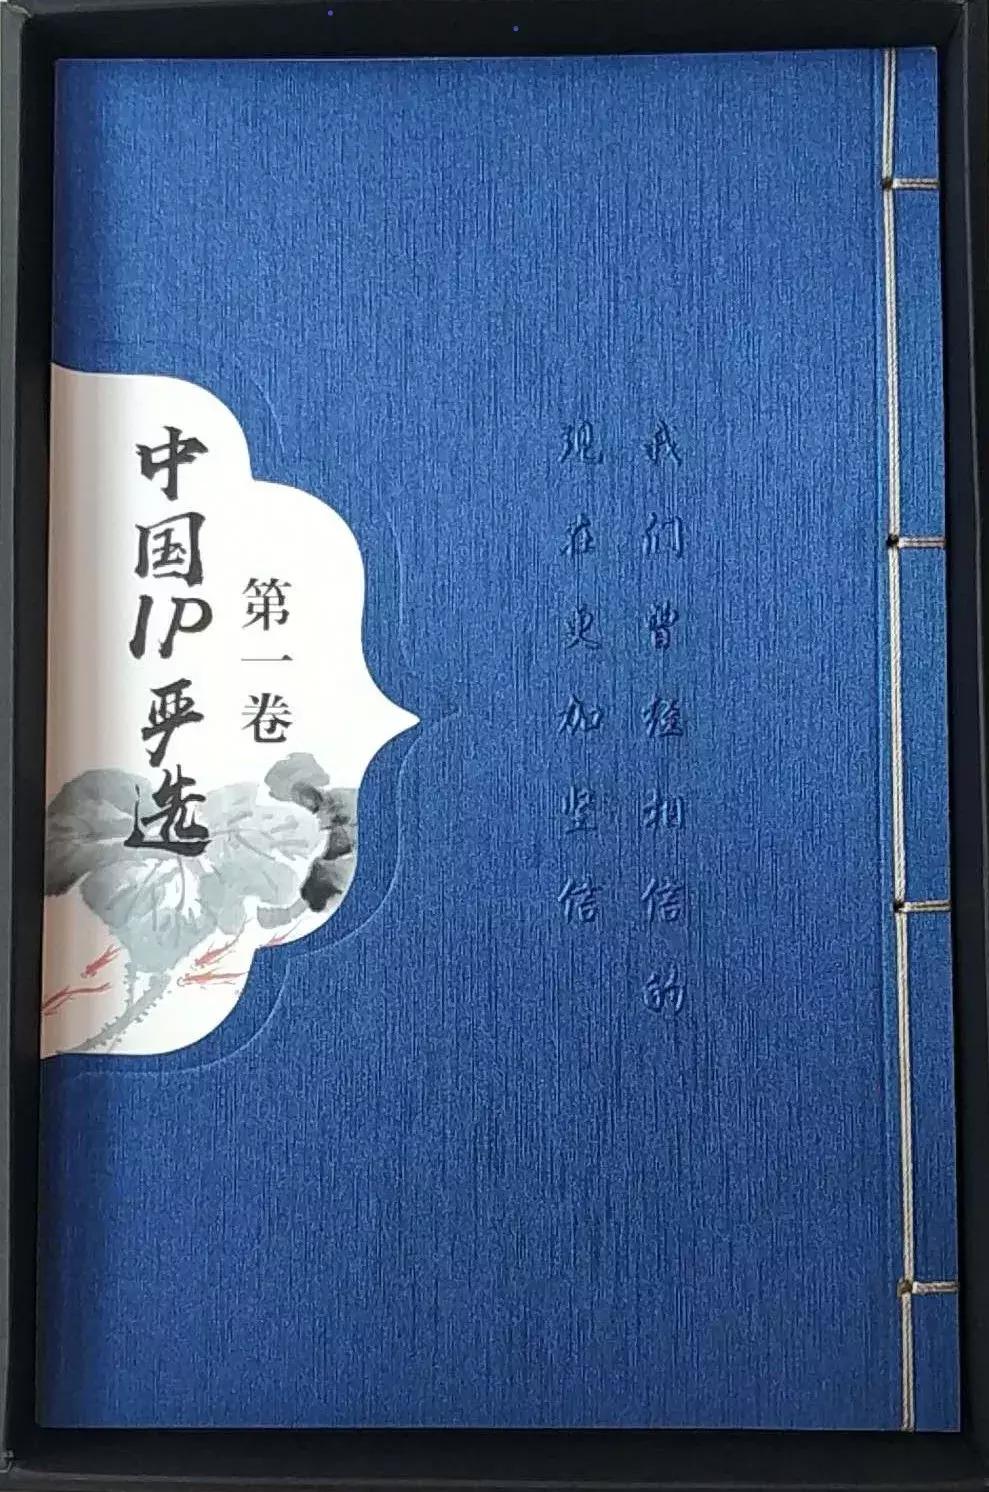 我们曾经相信的
现在更加坚信
中国IP严选
第一卷